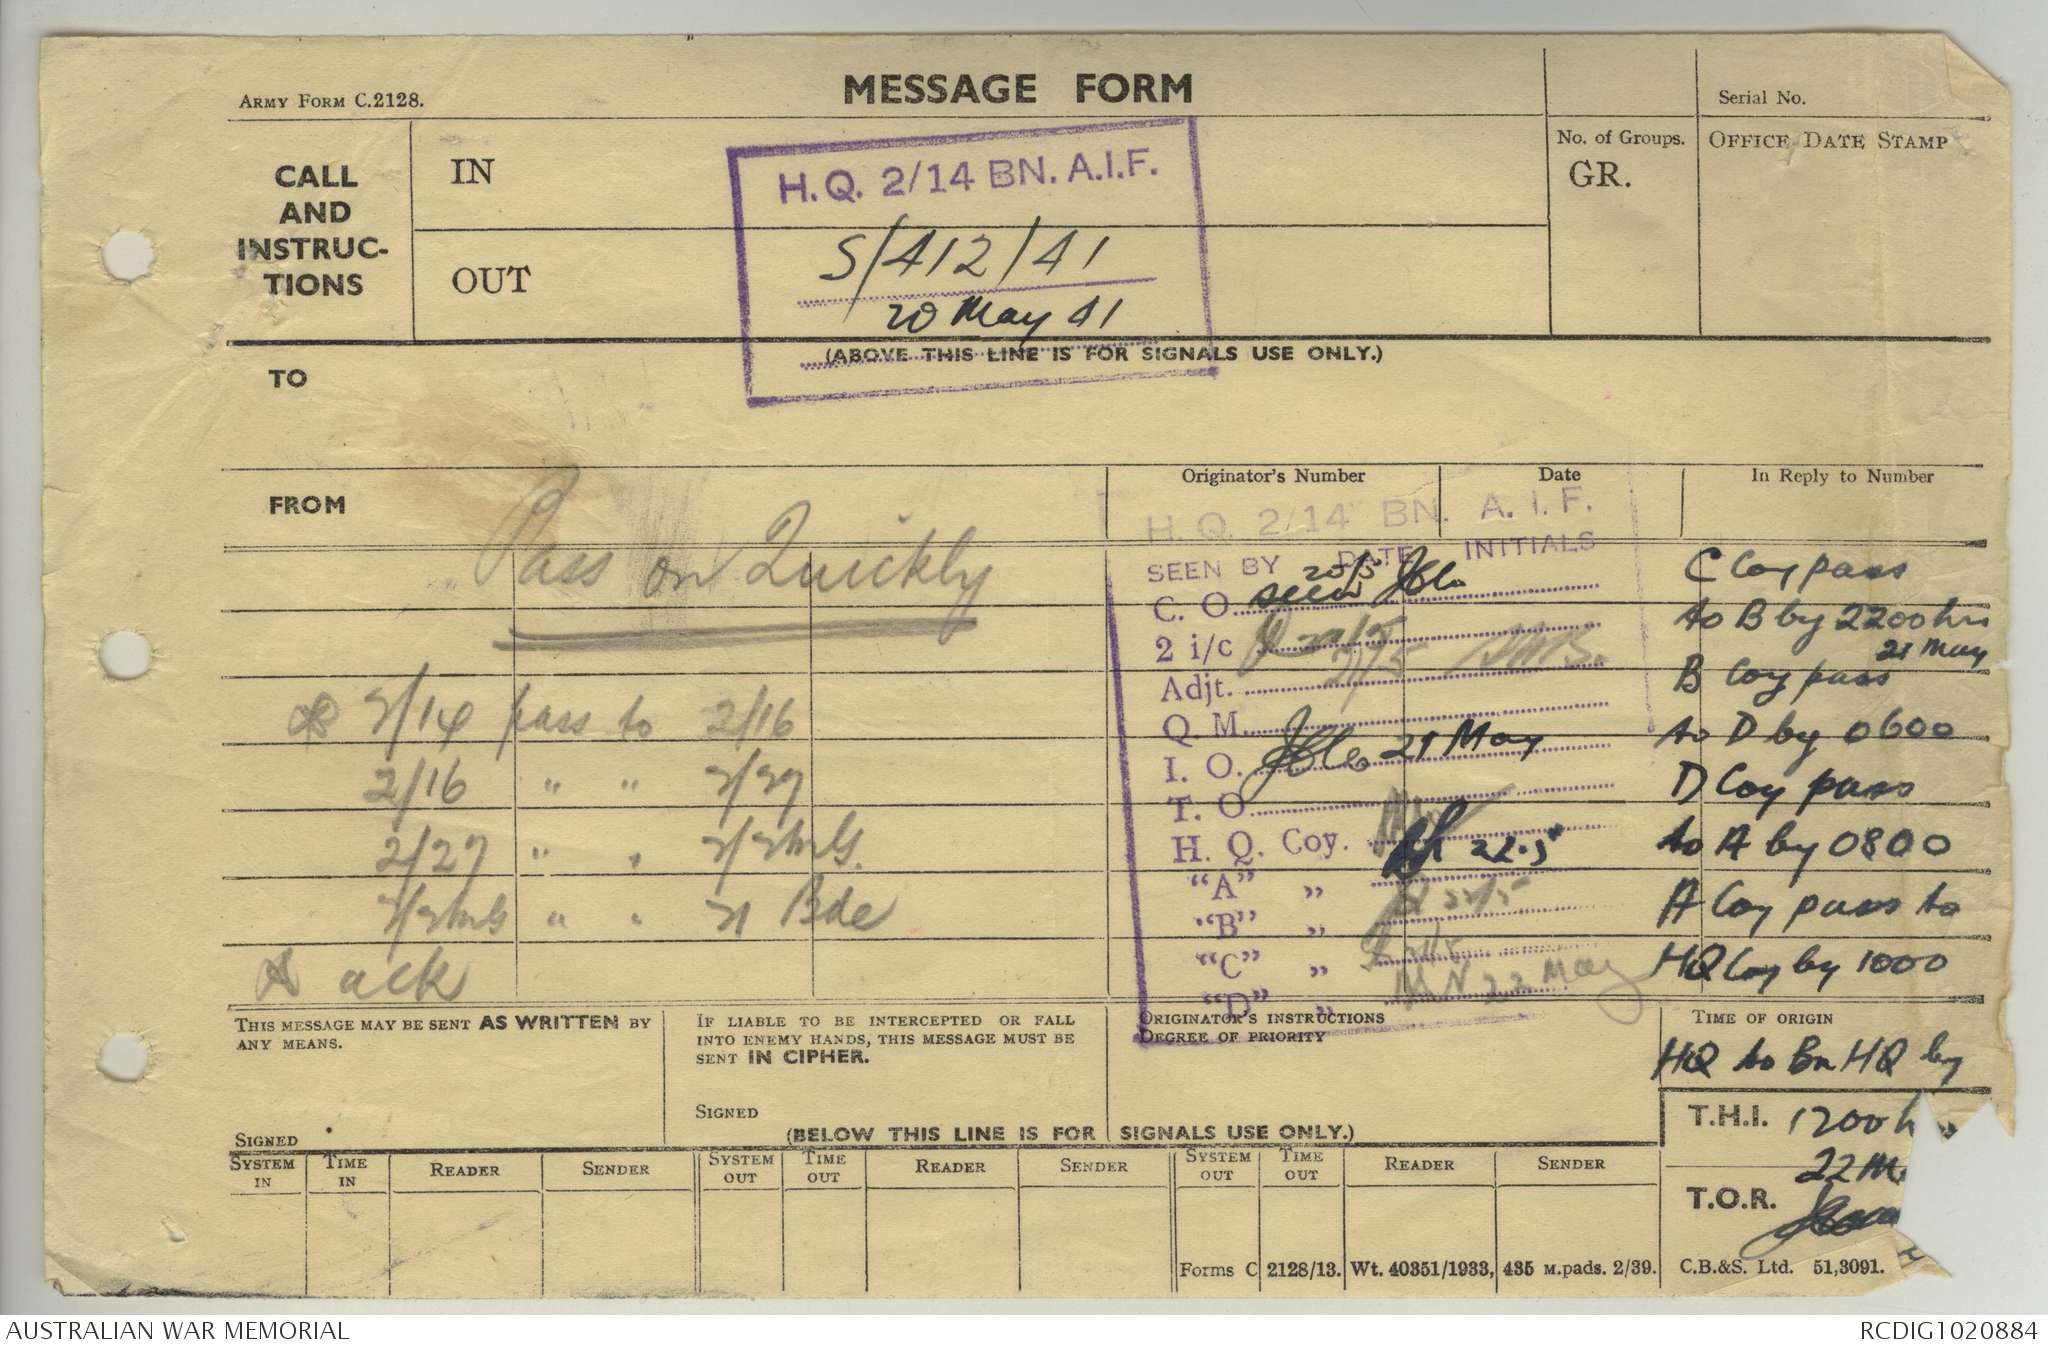 MESSAGE FORM
ARMY FORM C.2128.
Serial No.
CALL
AND
INSTRUC-
TIONS
IN
OUT
No. of Groups.
GR.
OFFICE DATE STAMP
H.Q. 2/14 BN. A.I.F.
S/412/41
20 May 41
(ABOVE THIS LINE IS FOR SIGNALS USE ONLY.)
TO
FROM
Originator's Number
Date
In Reply to Number
Pass on Quickly
2/14 pass to 2/16
2/16 " " 2/27
2/27 " "
" " 21 Bde
ack
H. Q. 2/14 BN. A. I. F.
SEEN BY DATE INITIALS
C. O. seen 20/5
2 i/c
Adjt. 21/5
Q. M.
I. O. 21 May
T. O.
H. Q. Coy.
"A" " 22.5
"B" " 22/5
"C" " 21/5
"D" " 22 May
C Coy pass
to B by 2200 hrs
21 May
B Coy pass
to D by 0600
D Coy pass
to A by 0800
A Coy pass to
HQ Coy by 1000
HQ to Bn HQ by
1200 h
22 M
THIS MESSAGE MAY BE SENT AS WRITTEN BY
ANY MEANS.
SIGNED
IF LIABLE TO BE INTERCEPTED OR FALL
INTO ENEMY HANDS, THIS MESSAGE MUST BE
SENT IN CIPHER.
SIGNED
ORIGINATOR'S INSTRUCTIONS
DEGREE OF PRIORITY
TIME OF ORIGIN
T.H.I.
T.O.R.
(BELOW THIS LINE IS FOR SIGNALS USE ONLY.)
SYSTEM IN
TIME IN
READER
SENDER
SYSTEM OUT
TIME OUT
READER
SENDER
SYSTEM OUT
TIME OUT
READER
SENDER
Forms C 2128/13. Wt. 40351/1933, 435 M.pads. 2/39. C.B.&S. Ltd. 51,3091.
AUSTRALIAN WAR MEMORIAL
RCDIG1020884